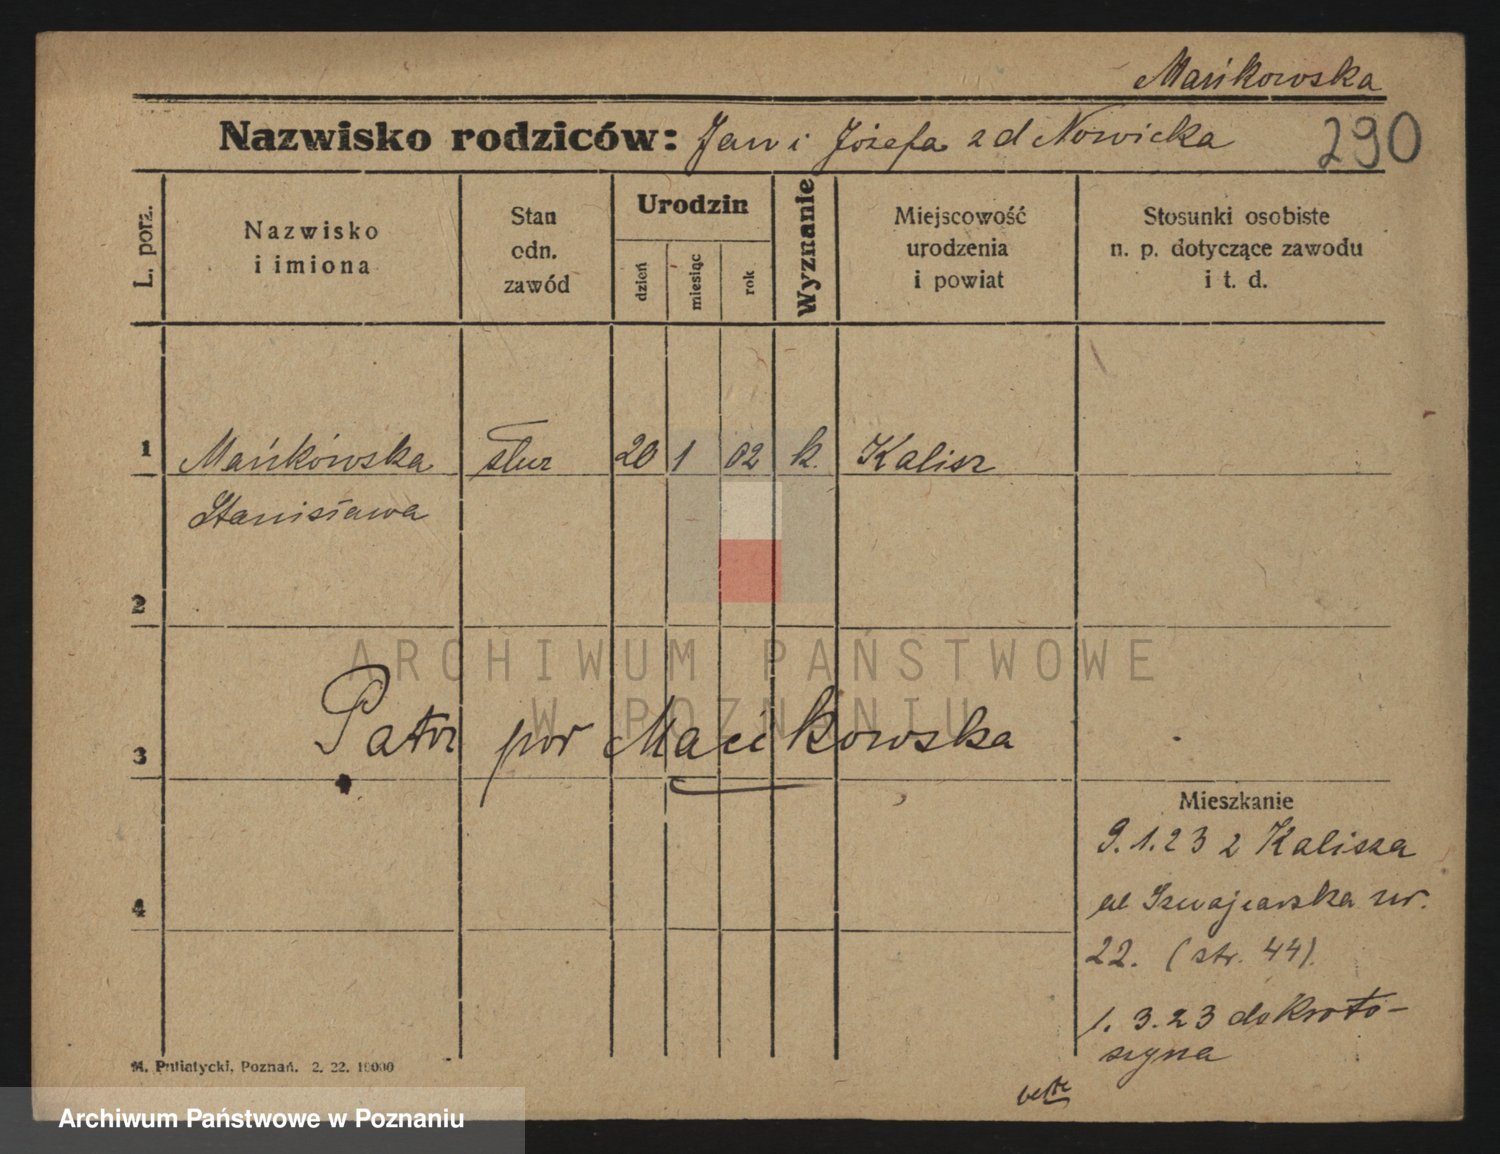 Mańkowska
Nazwisko rodziców: Jan i Józefa z d Nowicka 290
L. porz.
Nazwisko
i imiona
Stan
odn.
zawód
Urodzin
dzień
miesiąc
rok
Wyznanie
Miejscowość
urodzenia
i powiat
Stosunki osobiste
n. p. dotyczące zawodu
i t. d.
1 Mańkówska służ 20 1 02 k. Kalisz
Stanisława
2
ARCHIWUM PAŃSTWOWE
W POZNANIU
3 Patrz por Macikowska
Mieszkanie
9.1.23 z Kalisza
ul Szwajcarska nr.
4
22. (str. 44).
1. 3.23 do Kroto-
szyna
M. Putiatycki, Poznań. 2. 22. 10000
Archiwum Państwowe w Poznaniu